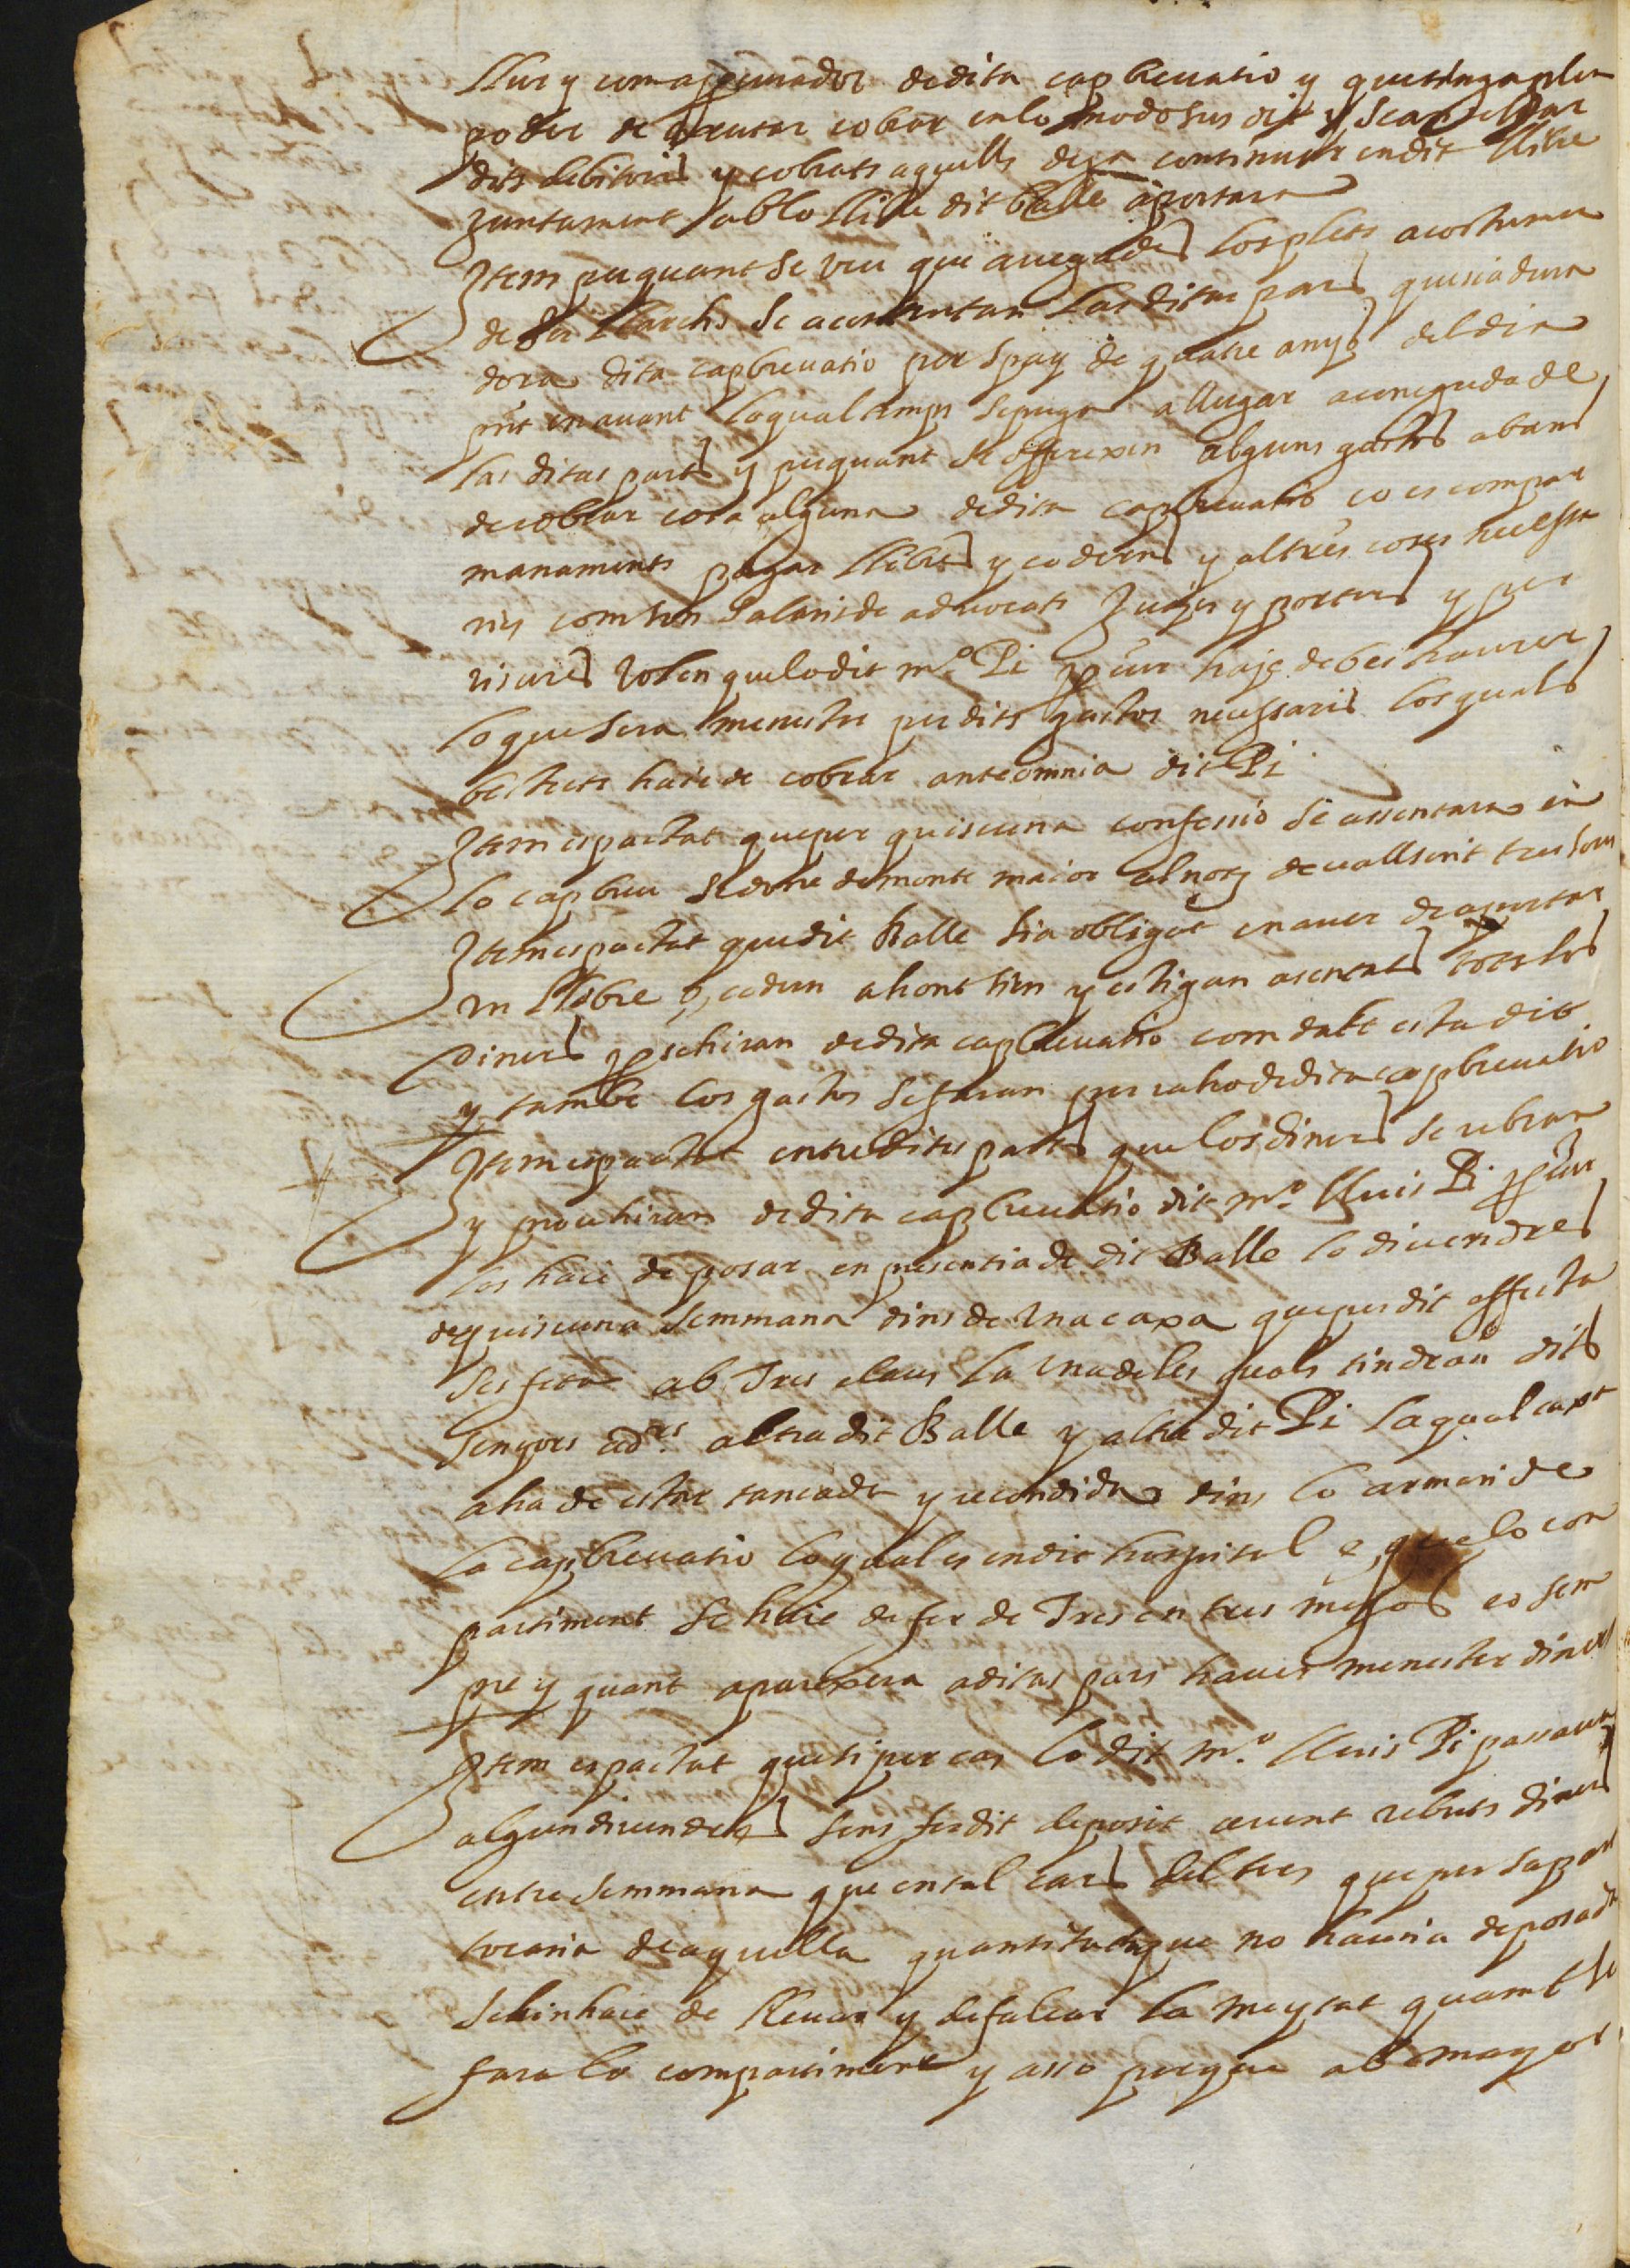 llur y com a procurador de dita capbrevatio y que tinga ple
poder de executar cobrar en lo modo sus dit y
dits debitoris y cobrats aquells dega continuar en dit llibre
Juntament ab lo llibre dit Balle aportara
Item per quant se veu que a vegades los plets acostumen
de ser llarchs se acontentan las ditas pars que sia dura
dora dita capbrevatio per spay de quatre anys del dia
pnt en avant lo qual temps se puga allargar a coneguda de
las ditas parts y per quant se offerexen alguns gastos abans
de cobrar cosa alguna de dita capbrevatio ço es compar
manaments pagar llibres y coderns y altres coses necessa
ries com son salaris de advocats Jutges y porters y per
volen que lo dit mº Pi haje de bestraurer
lo que sera menester per dits gastos necessaris los quals
bestrets haie de cobrar ante omnia dit Pi
Item es pactat que per quiscuna confessio se assentara en
lo capbreu se done de monte maior al notj devall scrit tres sous
Item es pactat que dit Balle sia obligat en aver de aportar
un llibre o codern ahont sien y estigan asentats tots los
diners prochiran de dita capbrevatio com dalt esta dit
y tambe los gastos se faran per raho de dita capbrevatio
Item es pactat entre dites parts que los diners se cobrara
y prouhiran de dita capbrevatio dit mº lluis Pi
los haie de posar en presentia de dit Balle lo divendres
de quiscuna semmana dins de una caxa que per dit effecte
ses feta ab Tres claus la una de les quals tindran dits
senyors adrs altra dit Balle y altra dit Pi la qual caxa
aha de estar tancada y recondida dins lo armari de
la capbrevatio lo qual es en dit hospital e que lo com
partiment se haie de fer de Tres en tres mesos eo sem
pre y quant aparexera a ditas pars haver menester diners
Item es pactat que si per cas lo dit mº lluis Pi passava
algun divendres sens fer dit deposit avent rebuts diners
entre semmana que en tal cas del ters que per sa part
tocaria de aquella quantitat que no hauria deposada
se li n haie de llevar y defalcar la meytat quant se
fara lo compartiment y asso perque ab mayor